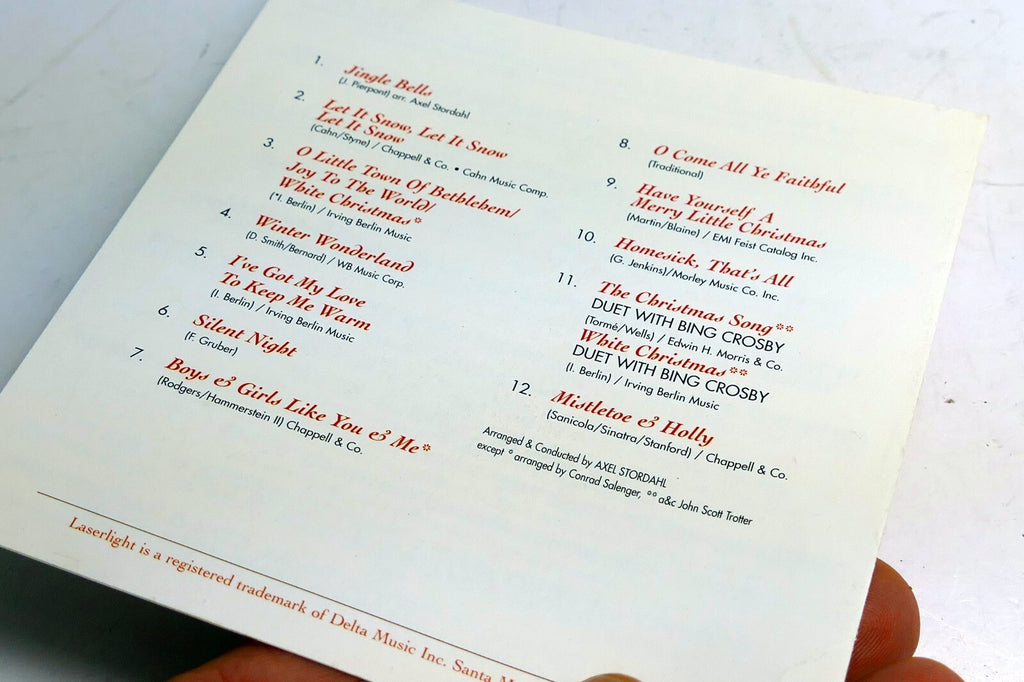 1. Jingle Bells
(J. Pierpont) arr. Axel Stordahl
2. Let It Snow, Let It Snow
Let It Snow
(Cahn/Styne) / Chappell & Co. • Cahn Music Comp.
3. O Little Town Of Bethlehem/
Joy To The World/
White Christmas*
(*I. Berlin) / Irving Berlin Music
4. Winter Wonderland
(D. Smith/Bernard) / WB Music Corp.
5. I've Got My Love
To Keep Me Warm
(I. Berlin) / Irving Berlin Music
6. Silent Night
(F. Gruber)
7. Boys & Girls Like You & Me*
(Rodgers/Hammerstein II) Chappell & Co.
8. O Come All Ye Faithful
(Traditional)
9. Have Yourself A
Merry Little Christmas
(Martin/Blaine) / EMI Feist Catalog Inc.
10. Homesick, That's All
(G. Jenkins)/Morley Music Co. Inc.
11. The Christmas Song**
DUET WITH BING CROSBY
(Tormé/Wells) / Edwin H. Morris & Co.
White Christmas**
DUET WITH BING CROSBY
(I. Berlin) / Irving Berlin Music
12. Mistletoe & Holly
(Sanicola/Sinatra/Stanford) / Chappell & Co.
Arranged & Conducted by AXEL STORDAHL
except * arranged by Conrad Salenger, ** a&c John Scott Trotter
Laserlight is a registered trademark of Delta Music Inc. Santa